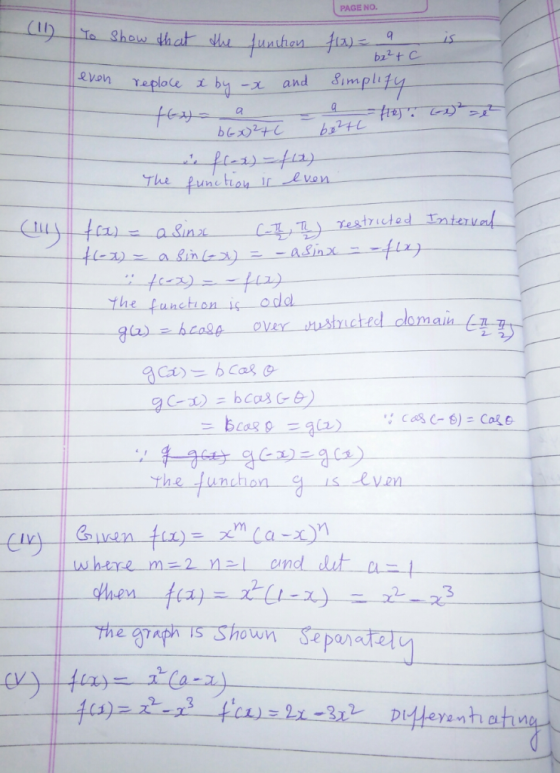 PAGE NO.
(II) To show that the function f(x) = a/(bx²+c) is
even replace x by -x and simplify
f(-x) = a/(b(-x)²+c) = a/(bx²+c) = f(x) ∵ (-x)² = x²
∴ f(-x) = f(x)
The function is even
(III) f(x) = a sinx (-π/2, π/2) restricted Interval
f(-x) = a sin(-x) = -a sinx = -f(x)
∵ f(-x) = -f(x)
The function is odd
g(x) = b cosθ over restricted domain (-π/2 π/2)
g(x) = b cos θ
g(-x) = b cos(-θ)
= b cosθ = g(x) ∵ cos(-θ) = cosθ
∵ g(-x) = g(x)
The function g is even
(IV) Given f(x) = x^m (a-x)^n
where m=2 n=1 and let a=1
then f(x) = x²(1-x) = x²-x³
The graph is shown Separately
(V) f(x) = x²(a-x)
f(x) = x²-x³ f'(x) = 2x-3x² Differentiating